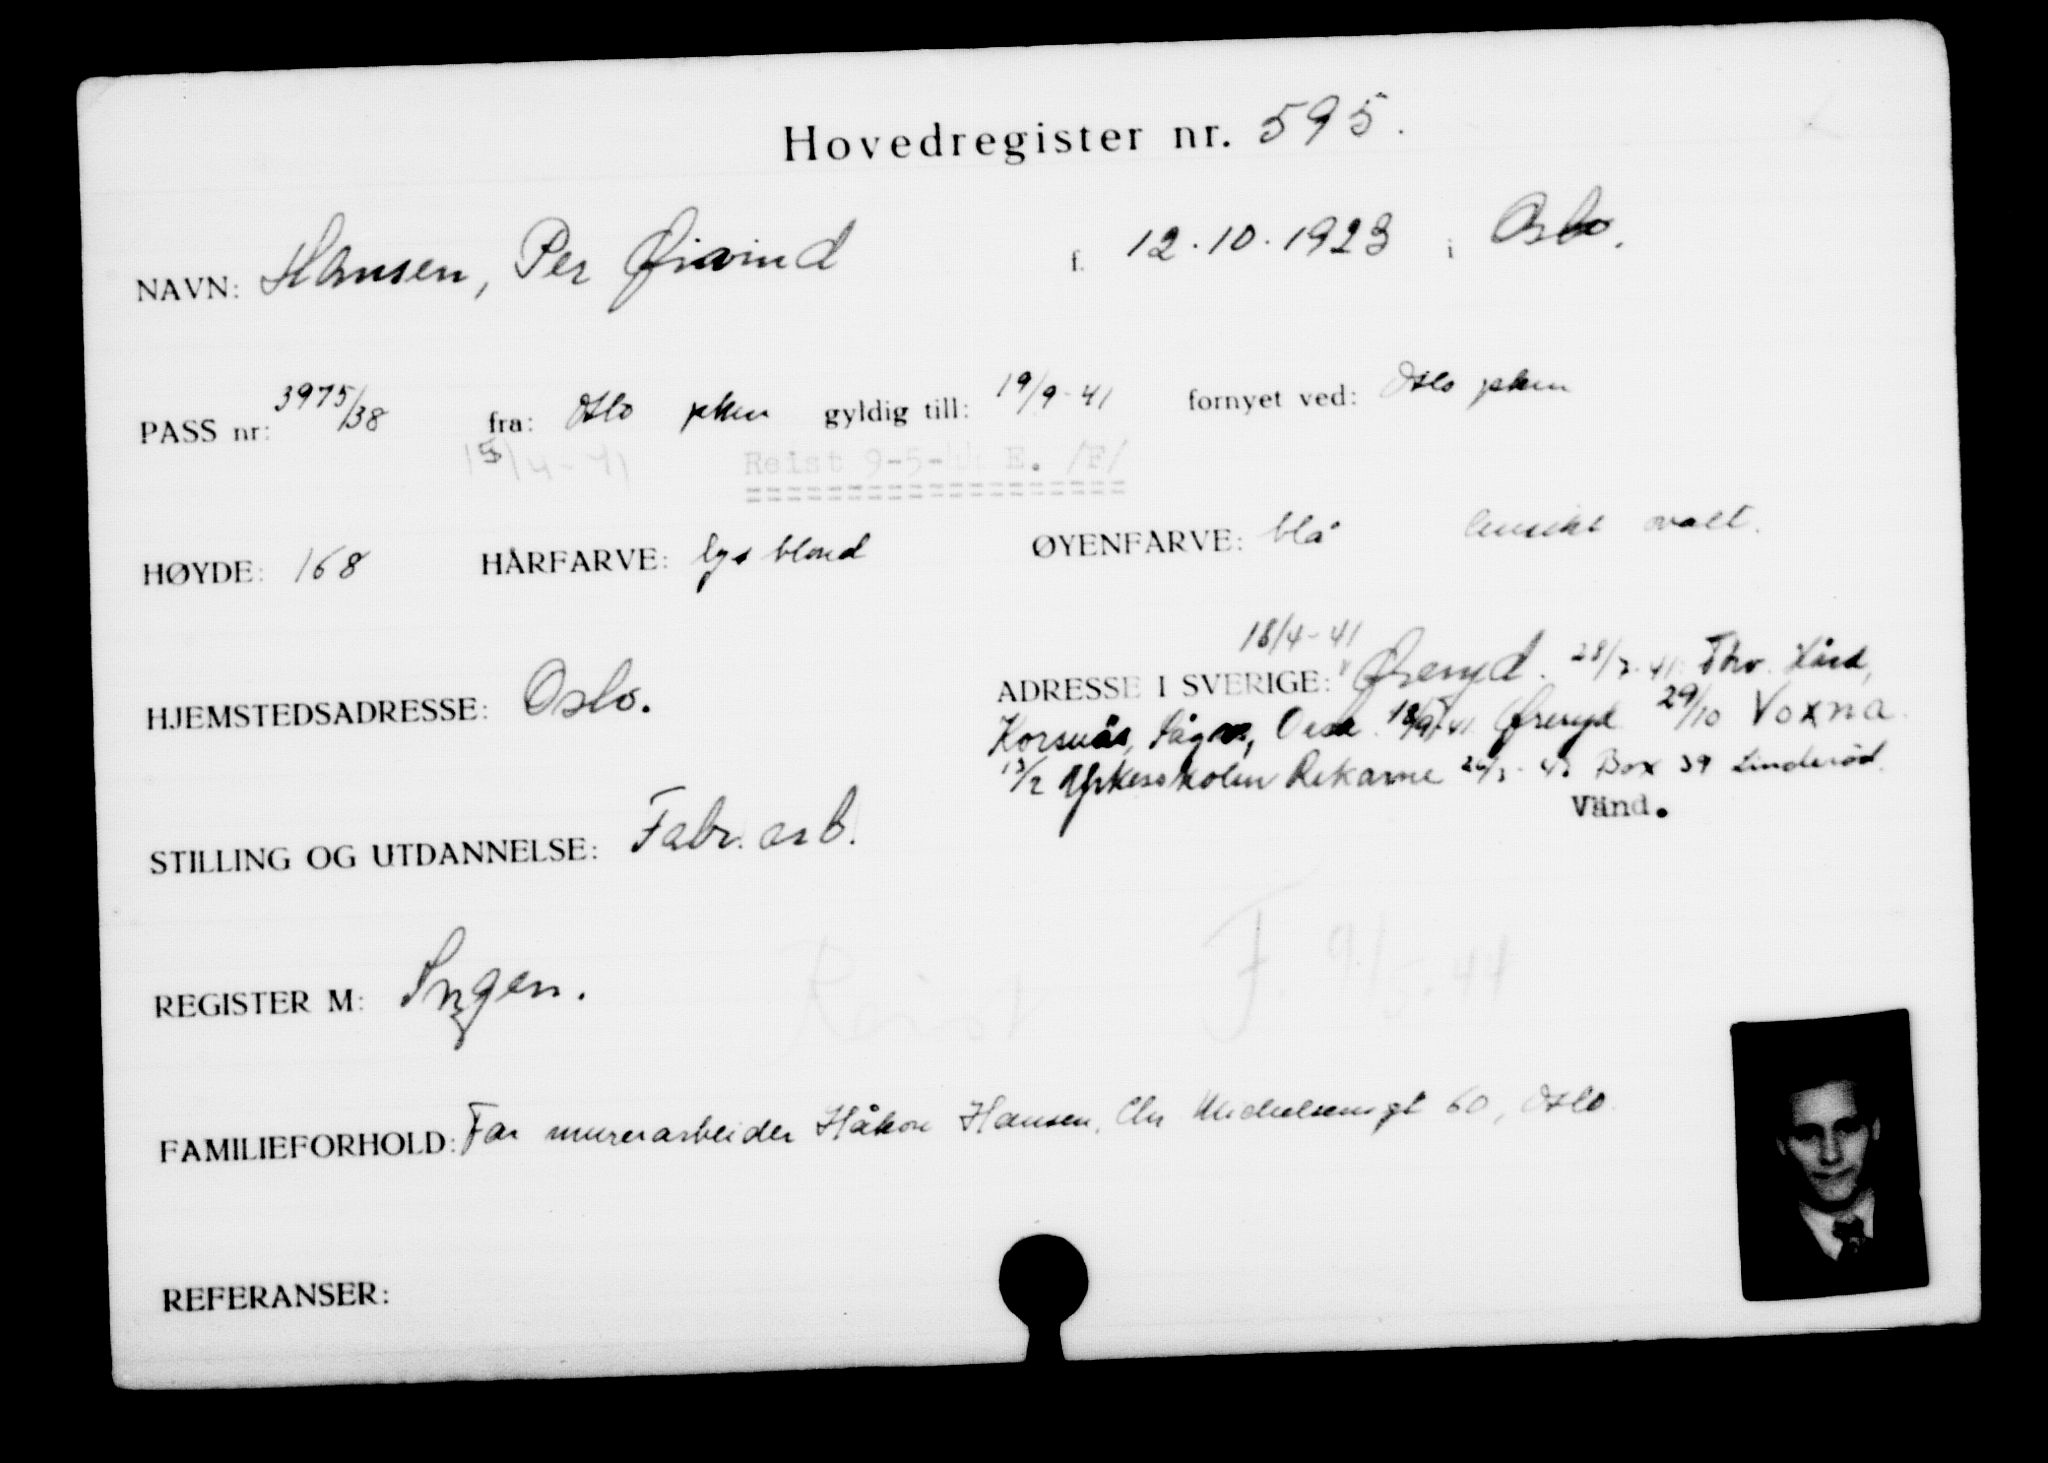 Hovedregister nr. 595.
NAVN: Hansen, Per Øivind f. 12.10.1923 i Oslo.
PASS nr: 3975/38 fra: Oslo pkm gyldig till: 19/9-41 fornyet ved: Oslo pkm
15/4-41 Reist 9-5-44 E. /F/
HØYDE: 168 HÅRFARVE: lys blond ØYENFARVE: blå ansikt ovalt.
18/4-41
HJEMSTEDSADRESSE: Oslo. ADRESSE I SVERIGE: Øreryd. 28/7-41 Thv. Hård,
Korsnäs, Orsa. 18/9-41 Øreryd 29/10 Voxna.
13/2 Yrkesskolen Rekarne Box 39 Linderöd.
Vänd.
STILLING OG UTDANNELSE: Fabr. arb.
REGISTER M: Ingen.
Reist F. 9/5-44
FAMILIEFORHOLD: Far murerarbeider Håkon Hansen, Chr Michelsensgt 60, Oslo.
REFERANSER: